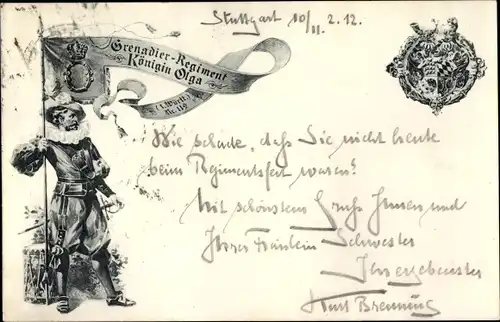 Stuttgart 10/II. 2.12.
Grenadier-Regiment
Königin Olga
(1. Württ.)
Nr. 119
Wie schade, daß Sie nicht heute
beim Regimentsfest waren!
Mit schönstem Gruß Ihnen und
Ihrer Fräulein Schwester
Ihr ergebenster
Kurt